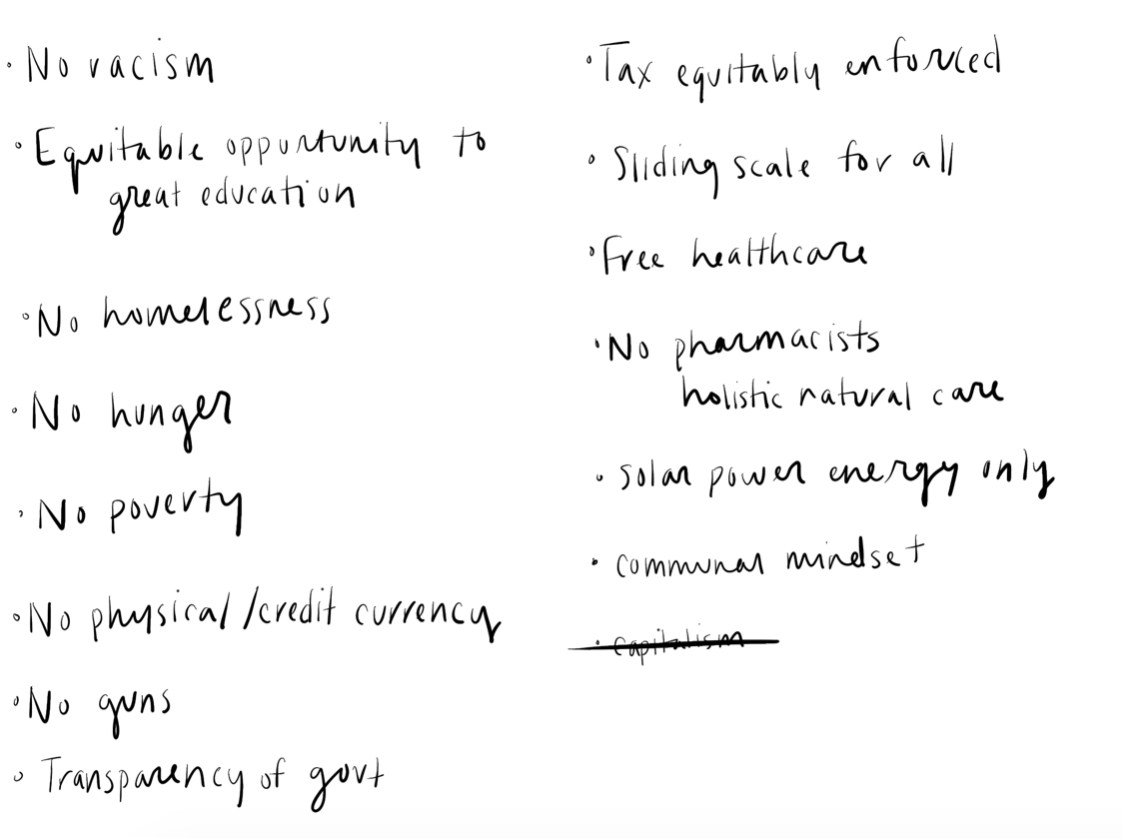 · No racism
· Equitable opportunity to
great education
· No homelessness
· No hunger
· No poverty
· No physical/credit currency
· No guns
· Transparency of govt
· Tax equitably enforced
· Sliding scale for all
· Free healthcare
· No pharmacists
holistic natural care
· solar power energy only
· communal mindset
· capitalism